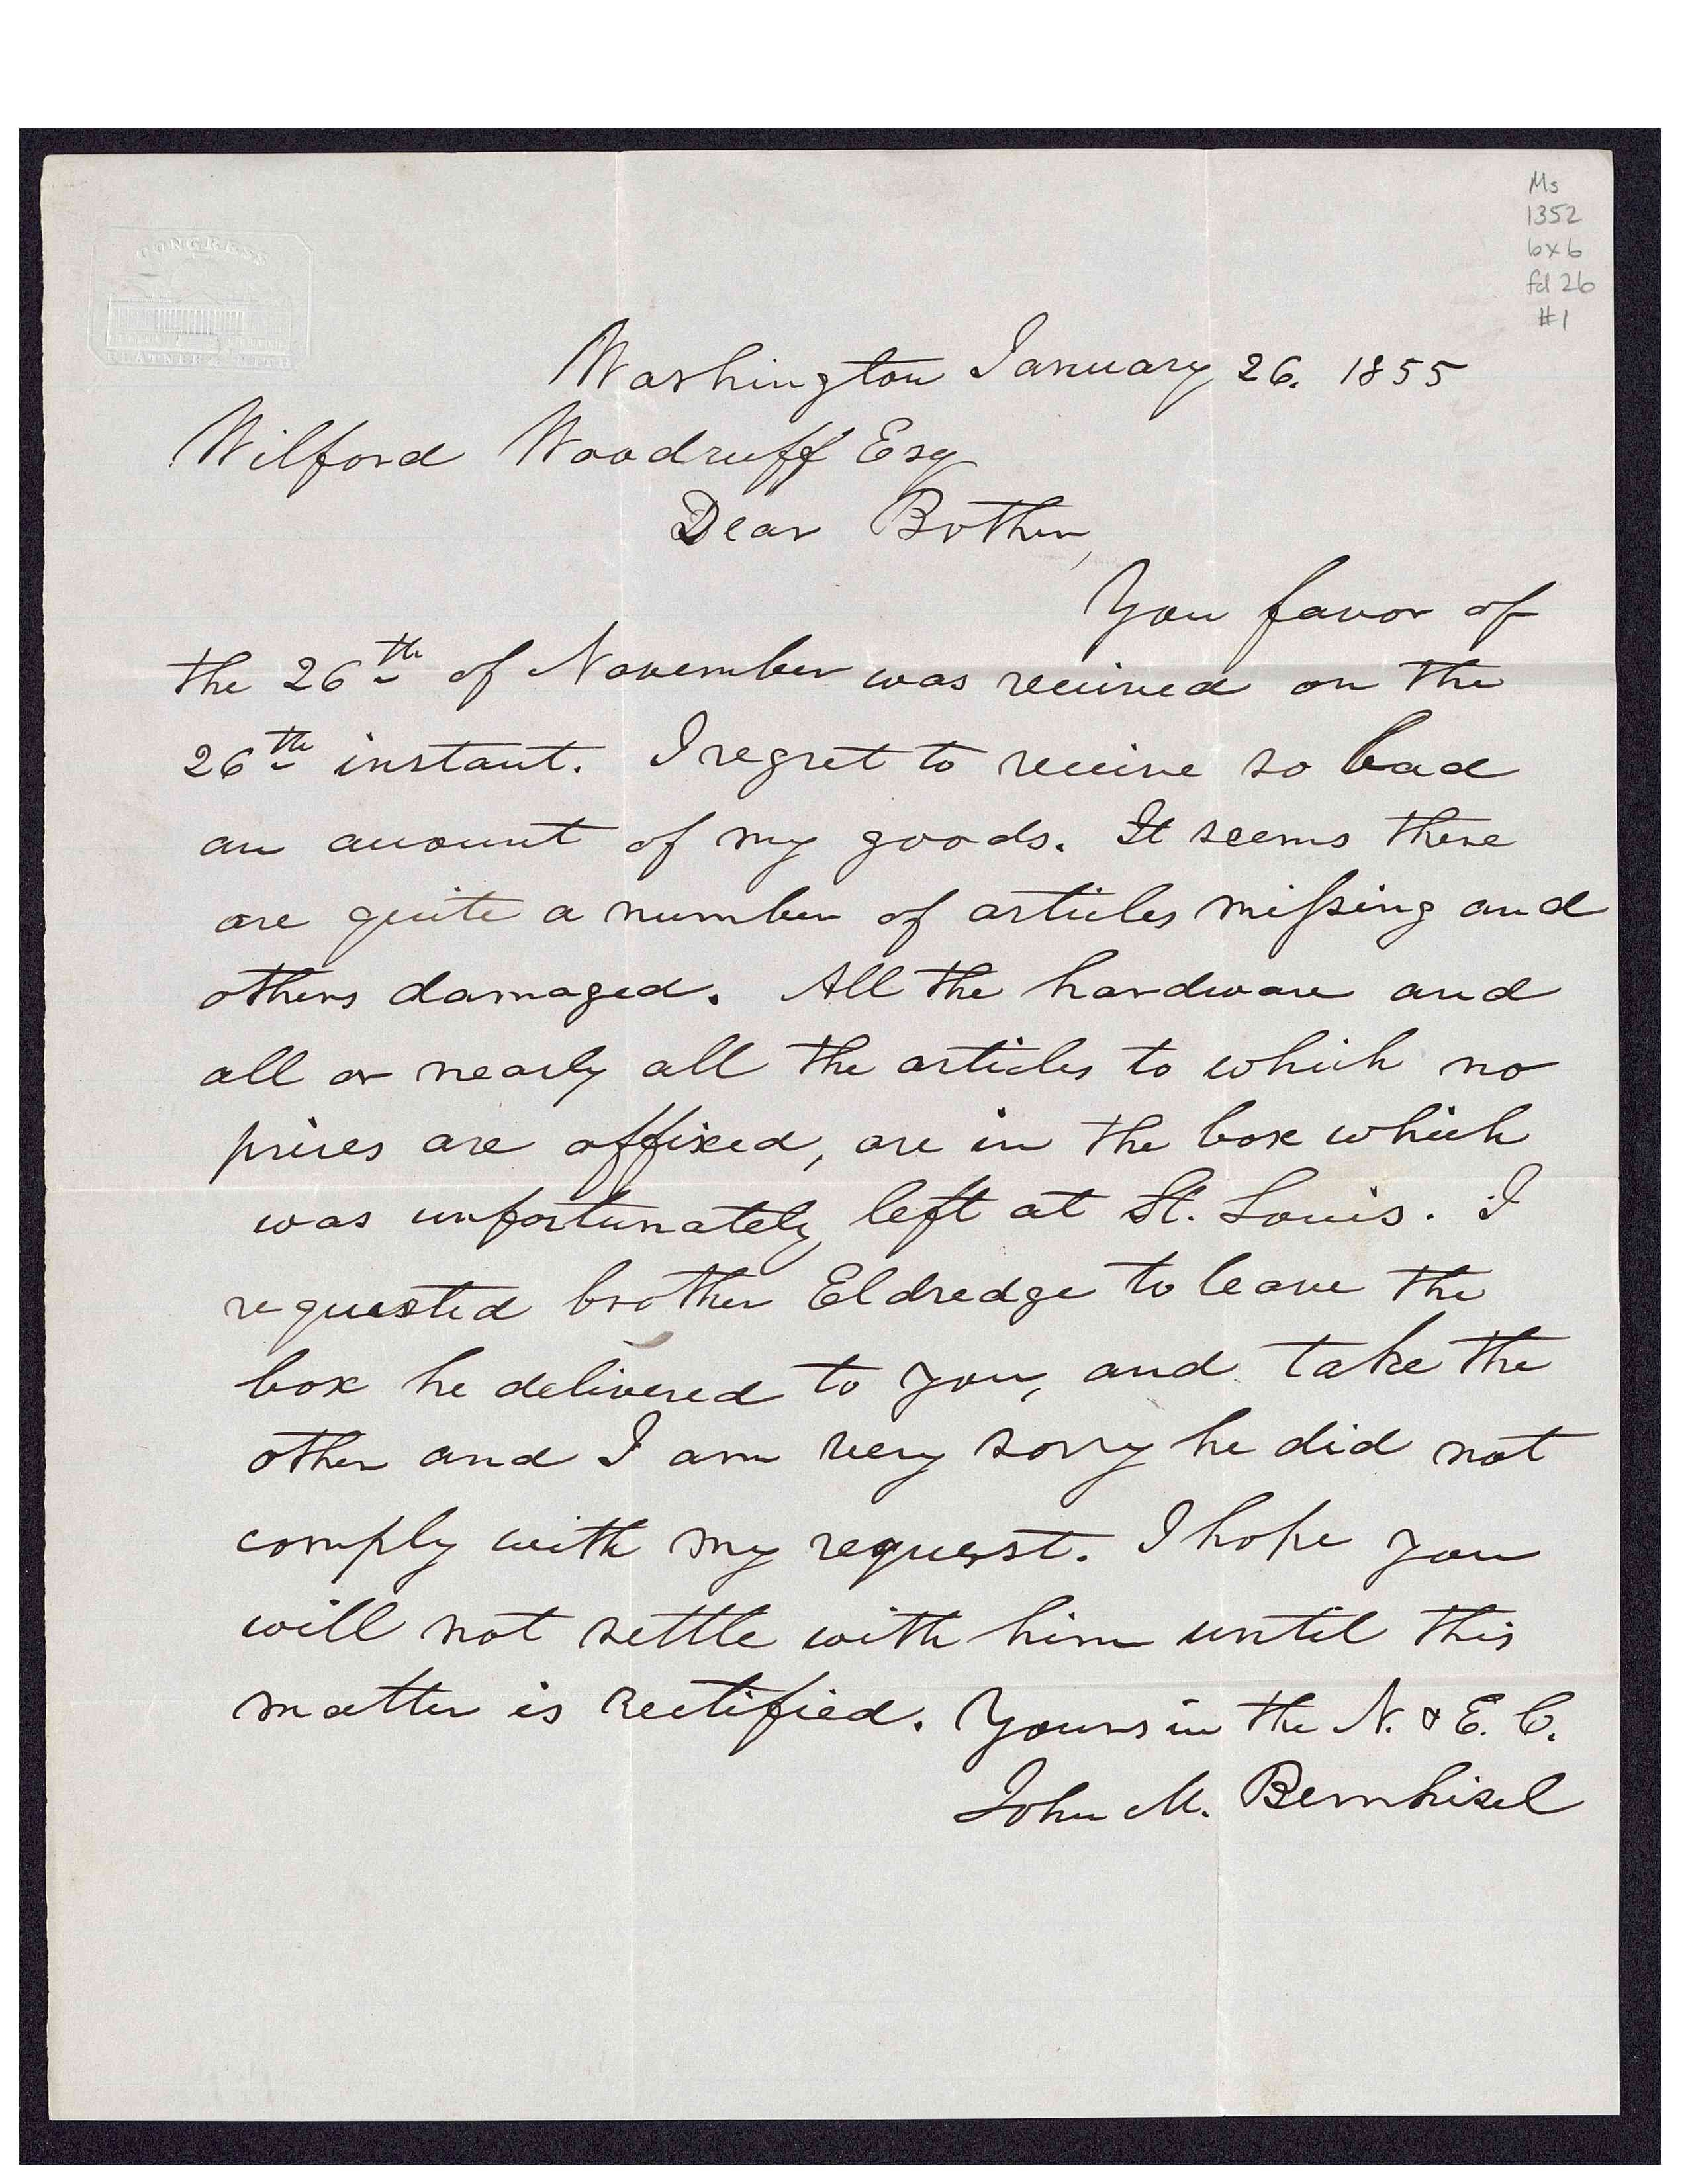 Ms
1352
bx 6
fd 26
#1
CONGRESS
Washington January 26. 1855
Wilford Woodruff Esq
Dear Bother,
You favor of
the 26th of November was received on the
26th instant. I regret to receive so bad
an account of my goods. It seems there
are quite a number of articles missing and
others damaged. All the hardware and
all or nearly all the articles to which no
prices are affixed, are in the box which
was unfortunately left at St. Louis. I
requested brother Eldredge to leave the
box he delivered to you, and take the
other and I am very sorry he did not
comply with my request. I hope you
will not settle with him until this
matter is rectified. Yours in the N. & E. C.
John M. Bernhisel